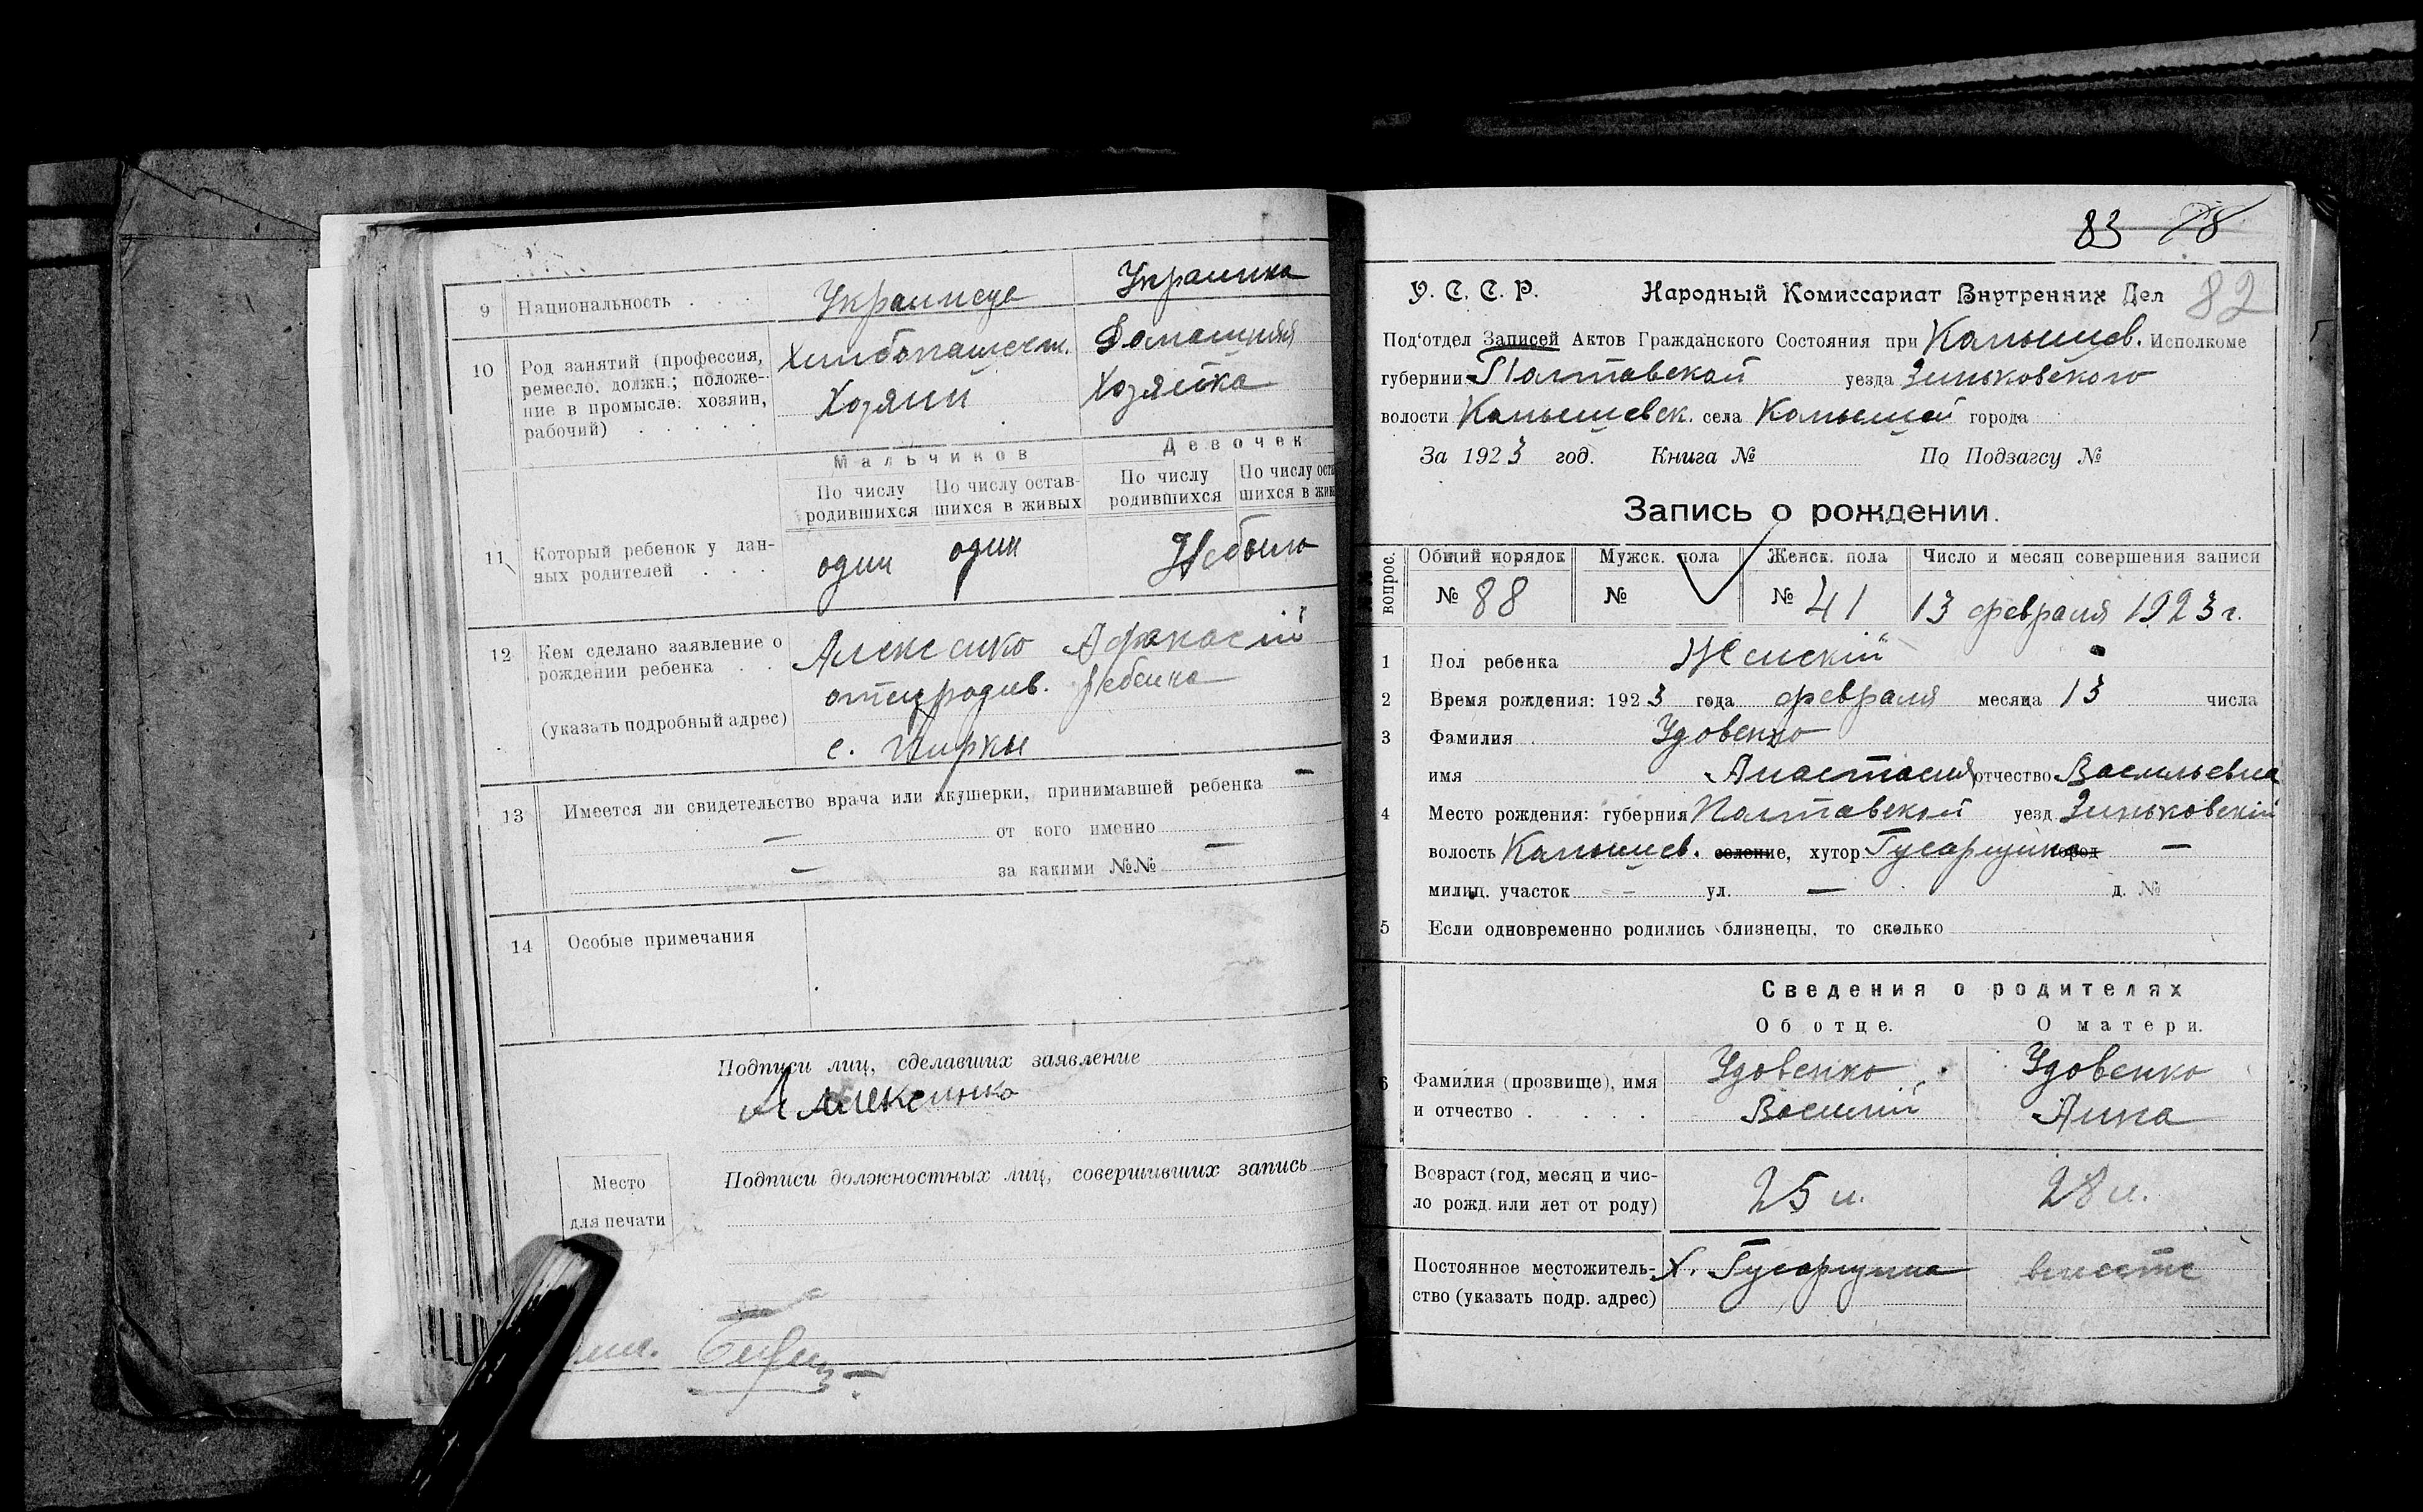 9 Национальность Украинец Украинка
10 Род занятий (профессия, ремесло, должн.; положе-
ние в промысле: хозяин, рабочий)
Хлибопашест. Домашняя
Хозяин Хозяйка
Мальчиков Девочек
По числу родившихся По числу остав-шихся в живых По числу родившихся По числу оста шихся в жив
11 Который ребенок у дан-
ных родителей
один один Небыло
12 Кем сделано заявление о
рождении ребенка
(указать подробный адрес)
Алексенко Афанасій
отец родив. ребенка
с.
13 Имеется ли свидетельство врача или акушерки, принимавшей ребенка —
— от кого именно
— за какими №№ —
14 Особые примечания
Подписи лиц, сделавших заявление
А Алексенко
Подписи должностных лиц, совершивших запись
Место
для печати
83 78
82
У. С. С. Р. Народный Комиссариат Внутренних Дел
Под‘отдел Записей Актов Гражданского Состояния при Камышев. Исполкоме
губернии Полтавской уезда Зиньковского
волости Камышевск. села Камышей города
За 1923 год. Книга № По Подзагсу №
Запись о рождении.
вопрос. Общий порядок Мужск. пола Женск. пола Число и месяц совершения записи
№ 88 № № 41 13 февраля 1923 г.
1 Пол ребенка Женскій
2 Время рождения: 1923 года февраля месяца 13 числа
3 Фамилия Удовенко
имя Анастасия отчество Васильевна
4 Место рождения: губерния Полтавской уезд Зиньковскій
волость Камышев. селение, хутор Гусарщина город —
милиц. участок — ул. — д. №
5 Если одновременно родились близнецы, то сколько
Сведения о родителях
Об отце. О матери.
6 Фамилия (прозвище), имя
и отчество
Удовенко Удовенко
Василій Анна
Возраст (год, месяц и чис-
ло рожд. или лет от роду)
25 л. 28 л.
Постоянное местожитель-
ство (указать подр. адрес)
Х. Гусарщина вместе